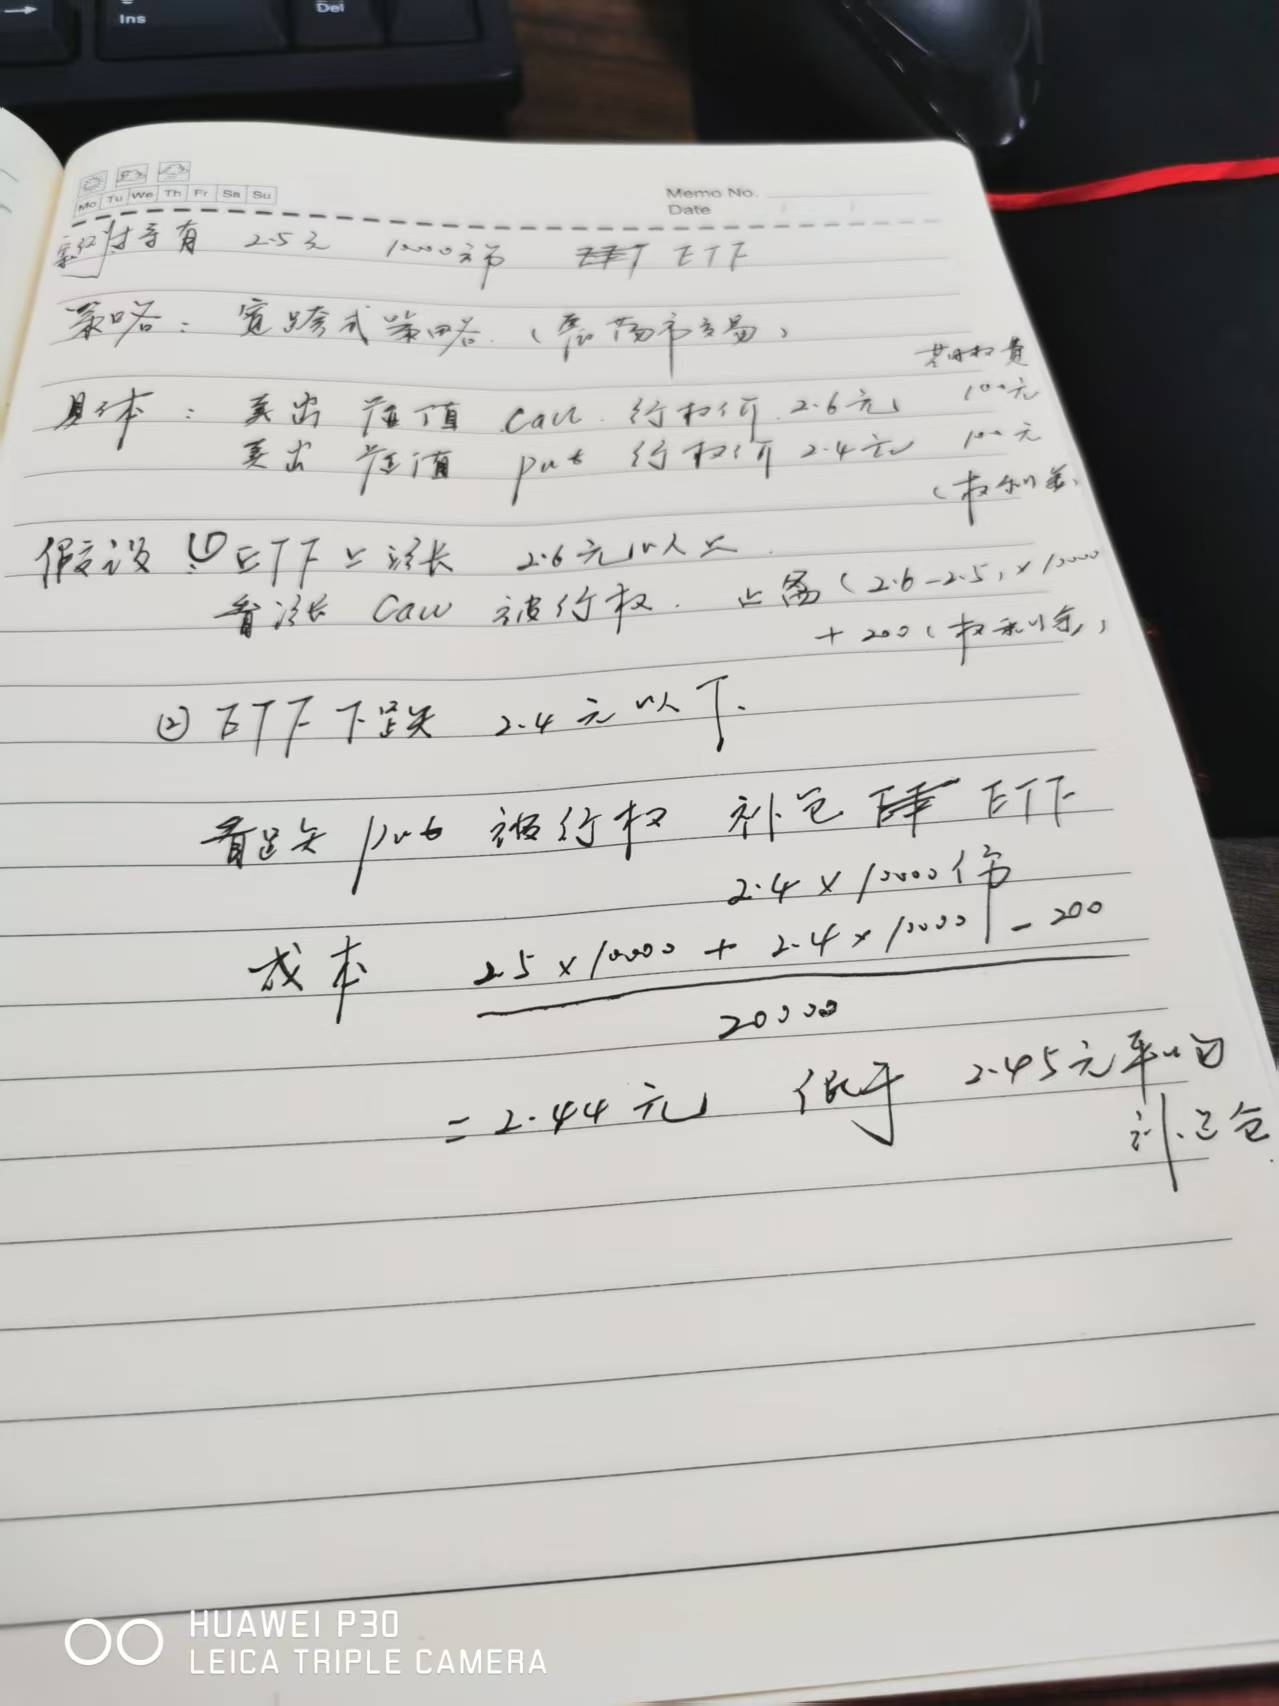 Ins
Del
Mo Tu We Th Fr Sa Su
Memo No.
Date
持有 2.5元 10000份 ETF
策略：宽跨式策略.（震荡市交易）
期权费
具体：卖出 虚值 call 行权价 2.6元 100元
卖出 虚值 put 行权价 2.4元 100元
（权利金）
假设 ① ETF 上涨 2.6元以上
看涨 call 被行权. 止盈（2.6-2.5）×10000
+200（权利金）
② ETF 下跌 2.4元以下.
看跌 put 被行权 补仓 ETF
2.4×10000份
成本 2.5×10000+2.4×10000-200
20000
=2.44元 低于 2.45元平均
补仓
HUAWEI P30
LEICA TRIPLE CAMERA